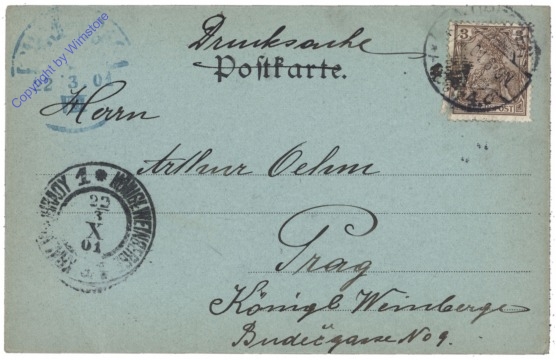 Drucksache
Postkarte.
Herrn
Arthur Oehm
Prag
Königl Weinberge
Budečgasse No 9.
3 3
POST
1 * KÖNIGL. WEINBERGE
23
X
01
2 3 01
Copyright by Wimstore